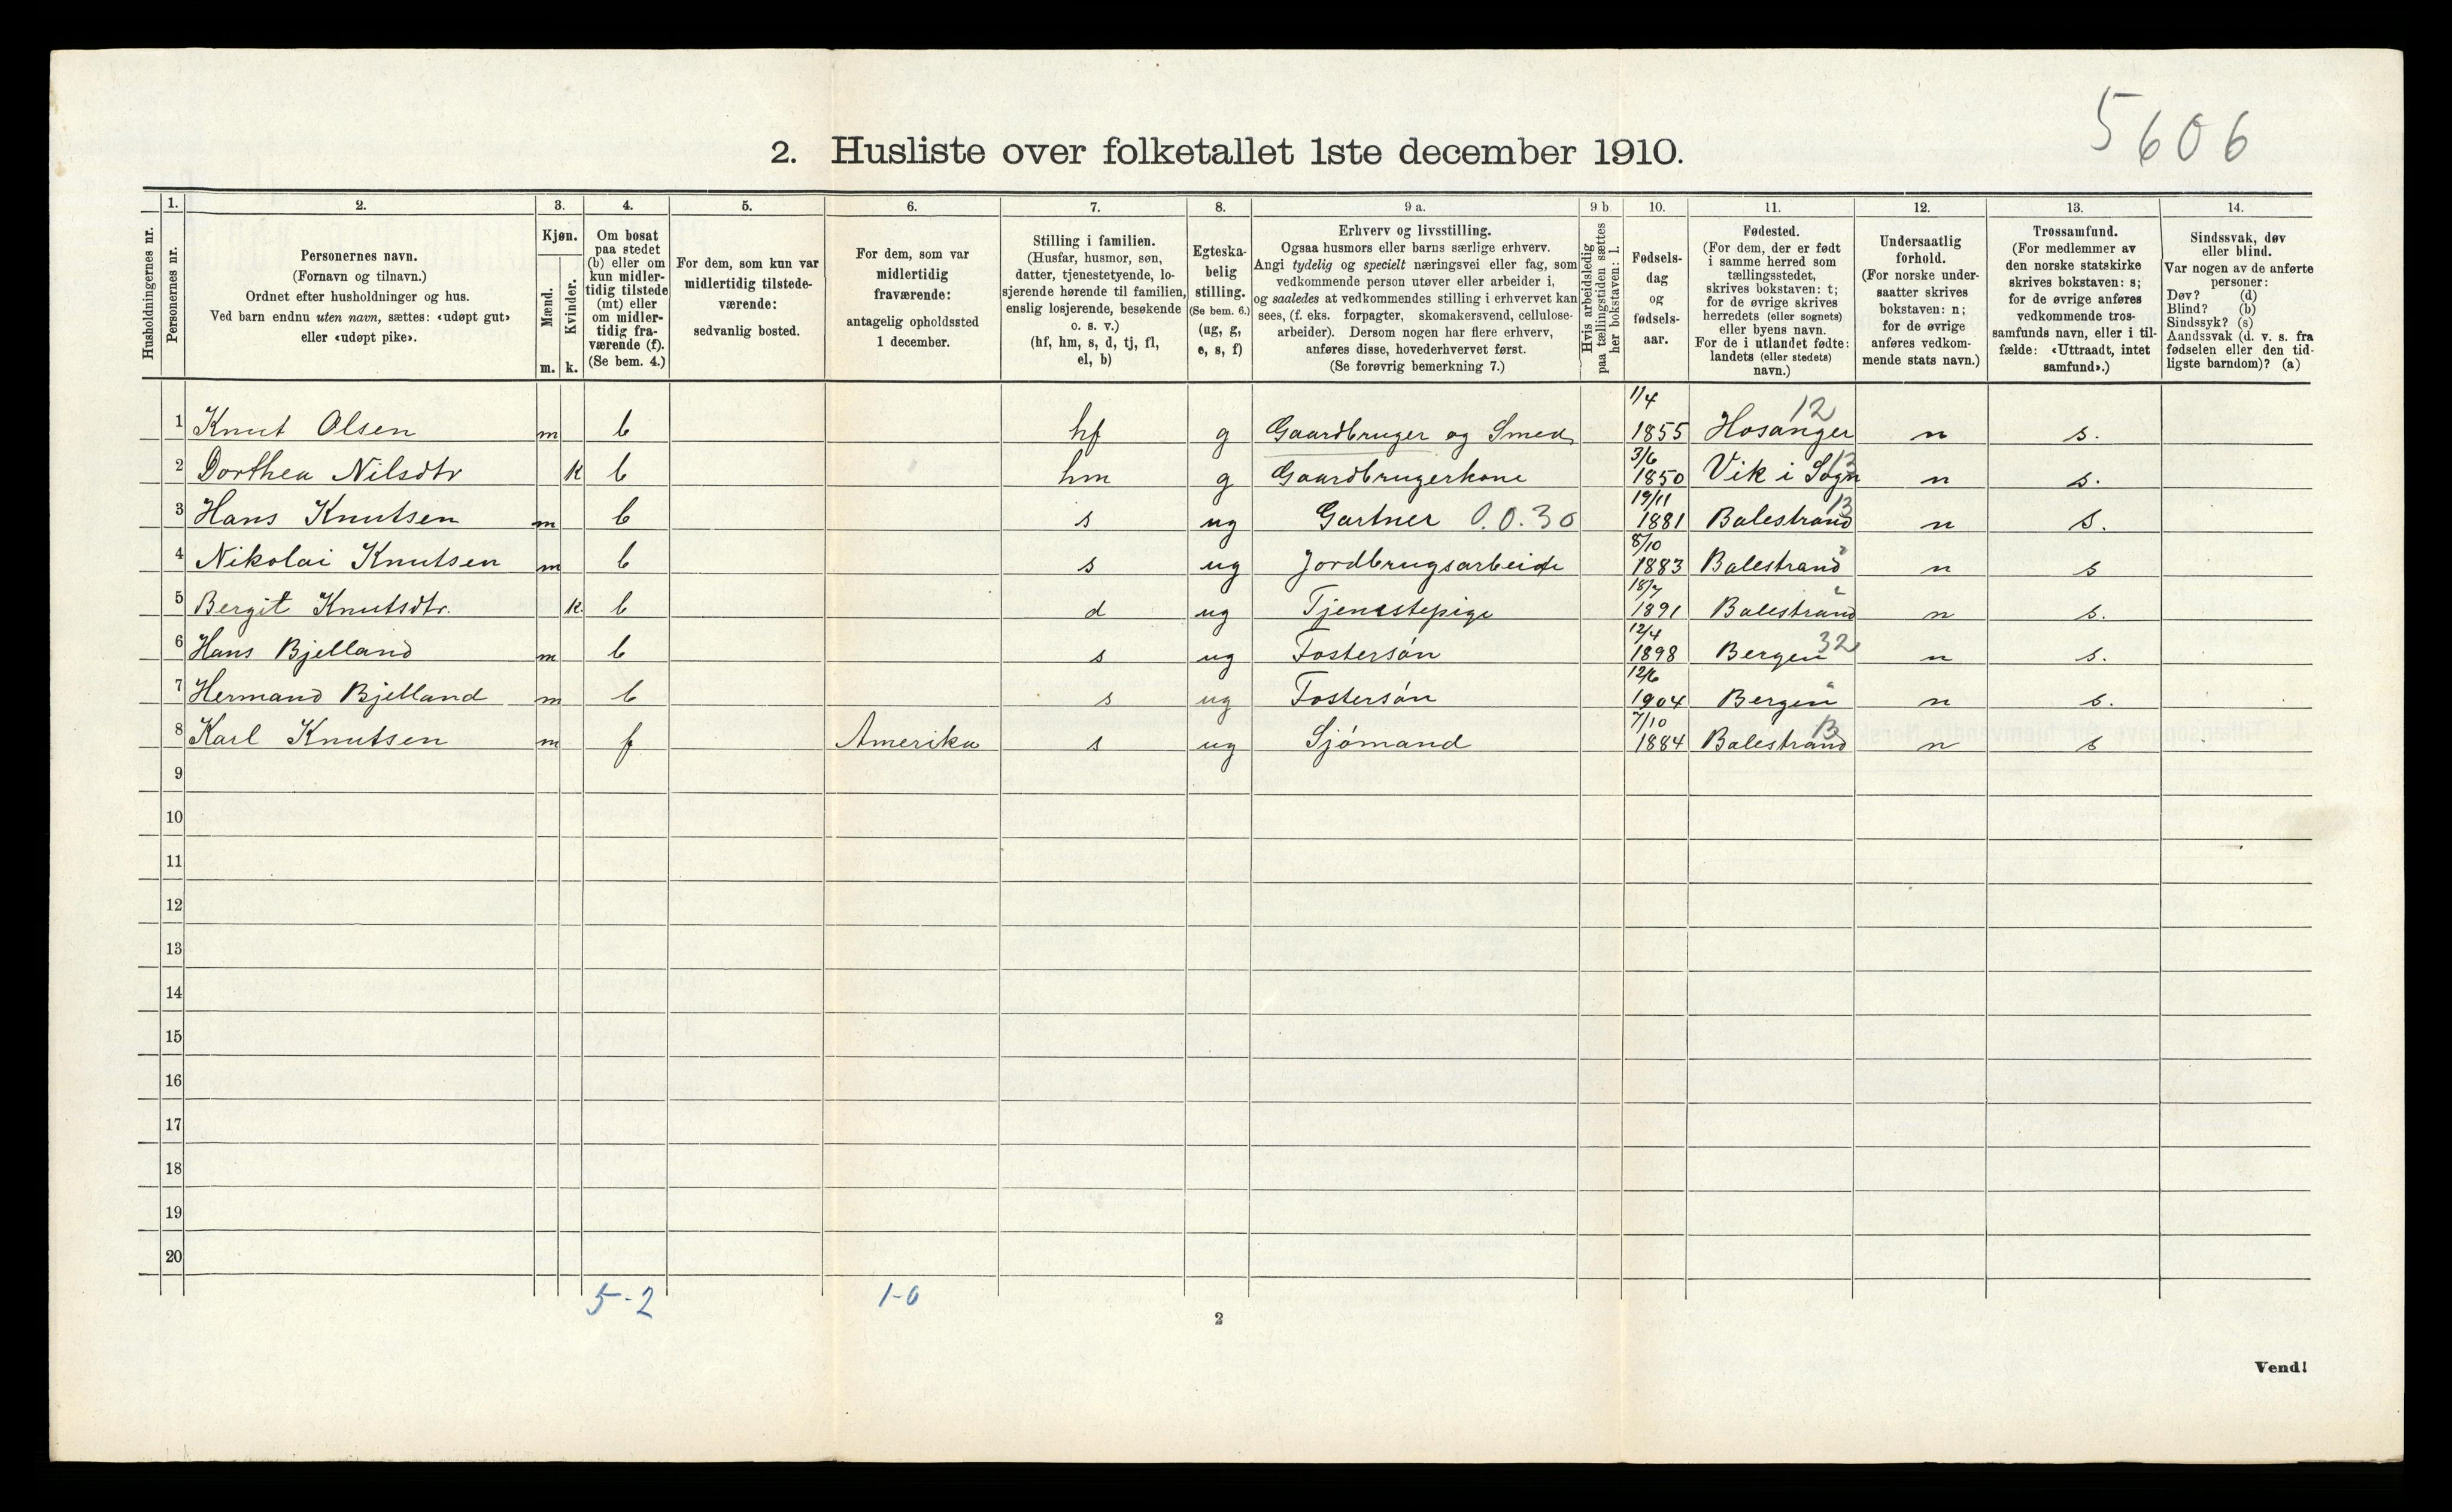 5606
2. Husliste over folketallet 1ste december 1910.
Husholdningernes nr.
1.
Personernes nr.
2.
Personernes navn.
(Fornavn og tilnavn.)
Ordnet efter husholdninger og hus.
Ved barn endnu uten navn, sættes: «udøpt gut»
eller «udøpt pike».
3.
Kjøn.
Mænd.
Kvinder.
m. k.
4.
Om bosat
paa stedet
(b) eller om
kun midler-
tidig tilstede
(mt) eller
om midler-
tidig fra-
værende (f).
(Se bem. 4.)
5.
For dem, som kun var
midlertidig tilstede-
værende:
sedvanlig bosted.
6.
For dem, som var
midlertidig
fraværende:
antagelig opholdssted
1 december.
7.
Stilling i familien.
(Husfar, husmor, søn,
datter, tjenestetyende, lo-
sjerende hørende til familien,
enslig losjerende, besøkende
o. s. v.)
(hf, hm, s, d, tj, fl,
el, b)
8.
Egteska-
belig
stilling.
(Se bem. 6.)
(ug, g,
e, s, f)
9 a.
Erhverv og livsstilling.
Ogsaa husmors eller barns særlige erhverv.
Angi tydelig og specielt næringsvei eller fag, som
vedkommende person utøver eller arbeider i,
og saaledes at vedkommendes stilling i erhvervet kan
sees, (f. eks. forpagter, skomakersvend, cellulose-
arbeider). Dersom nogen har flere erhverv,
anføres disse, hovederhvervet først.
(Se forøvrig bemerkning 7.)
9 b
Hvis arbeidsledig
paa tællingstiden sættes
her bokstaven: l.
10.
Fødsels-
dag
og
fødsels-
aar.
11.
Fødested.
(For dem, der er født
i samme herred som
tællingsstedet,
skrives bokstaven: t;
for de øvrige skrives
herredets (eller sognets)
eller byens navn.
For de i utlandet fødte:
landets (eller stedets)
navn.)
12.
Undersaatlig
forhold.
(For norske under-
saatter skrives
bokstaven: n;
for de øvrige
anføres vedkom-
mende stats navn.)
13.
Trossamfund.
(For medlemmer av
den norske statskirke
skrives bokstaven: s;
for de øvrige anføres
vedkommende tros-
samfunds navn, eller i til-
fælde: «Uttraadt, intet
samfund».)
14.
Sindssvak, døv
eller blind.
Var nogen av de anførte
personer:
Døv? (d)
Blind? (b)
Sindssyk? (s)
Aandssvak (d. v. s. fra
fødselen eller den tid-
ligste barndom)? (a)
1 Knut Olsen m b hf g Gaardbruger og Smed 1/4 1855 Hosanger 12 n s.
2 Dorthea Nilsdtr k b hm g Gaardbrugerkone 3/6 1850 Vik i Sogn 13 n s.
3 Hans Knutsen m b s ug Gartner 0.0.30 19/11 1881 Balestrand 13 n s.
4 Nikolai Knutsen m b s ug Jordbrugsarbeide 8/10 1883 Balestrand " n s
5 Bergit Knutsdtr. k. b d ug Tjenestepige 18/7 1891 Balestrand " n s.
6 Hans Bjelland m b s ug Fostersøn 12/4 1898 Bergen 32 n s.
7 Hermand Bjelland m b s ug Fostersøn 12/6 1904 Bergen " n s.
8 Karl Knutsen m f Amerika s ug Sjømand 7/10 1884 Balestrand 13 n s
9
10
11
12
13
14
15
16
17
18
19
20
5-2 1-0
2
Vend!